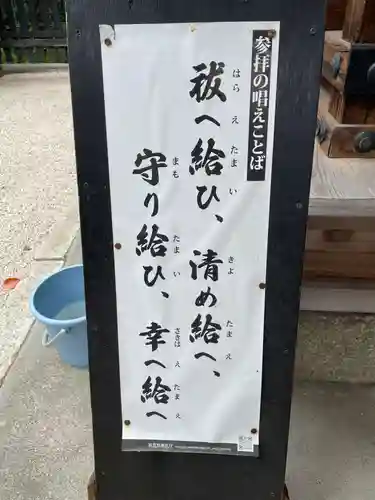 参拝の唱えことば
祓へ給ひ、清め給へ、
はら え たま い きよ たま え
守り給ひ、幸へ給へ
まも たま い さきは え たま え